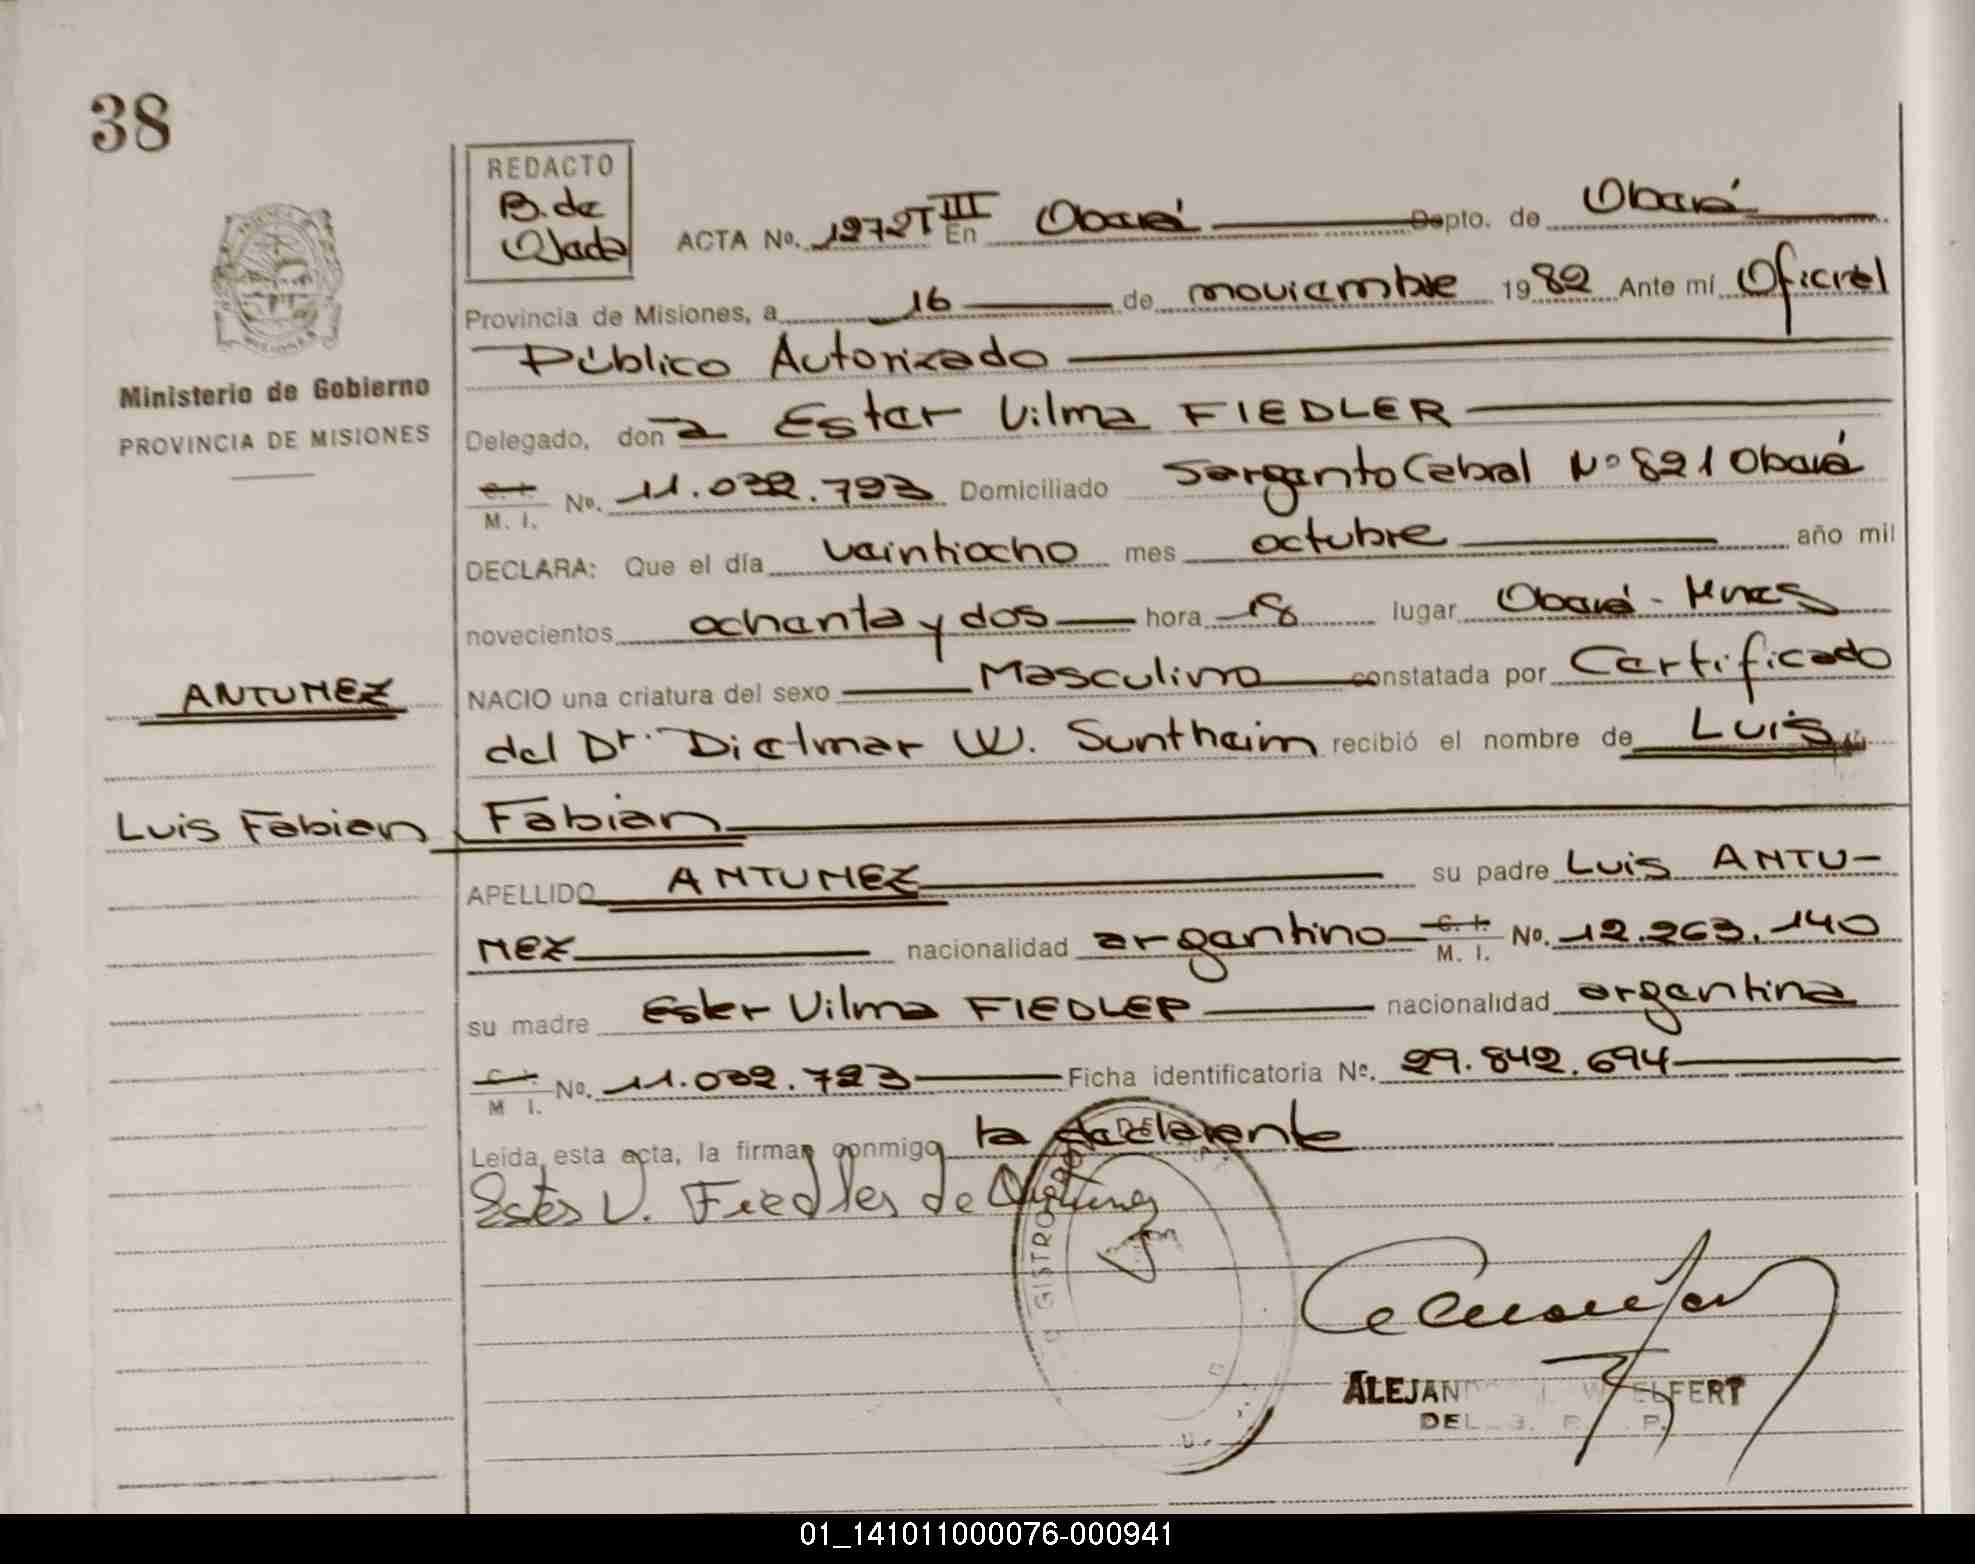 38
REDACTO
B. de
Ojeda
ACTA No. 1272 T III En Oberá Depto. de Oberá
Provincia de Misiones, a 16 de noviembre 1982 Ante mí Oficial
Público Autorizado
Ministerio de Gobierno
PROVINCIA DE MISIONES
Delegado, don a Ester Vilma FIEDLER
C. I. M. I. No. 11.032.793 Domiciliado Sargento Cabral No 821 Oberá
DECLARA: Que el día veintiocho mes octubre año mil
novecientos ochenta y dos hora 18 lugar Oberá - Mnes
ANTUNEZ
NACIO una criatura del sexo Masculino constatada por Certificado
del Dr. Dietmar W. Suntheim recibió el nombre de Luis
Luis Fabian
Fabian
APELLIDO ANTUNEZ su padre Luis ANTU-
NEZ nacionalidad argentino C. I. M. I. No. 12.263.140
su madre Ester Vilma FIEDLER nacionalidad argentina
C. I. M I. No. 11.032.793 Ficha identificatoria No. 29.842.694
Leída esta acta, la firman conmigo la declarente
Ester V. Fiedler de Antunez
DEL
01_141011000076-000941